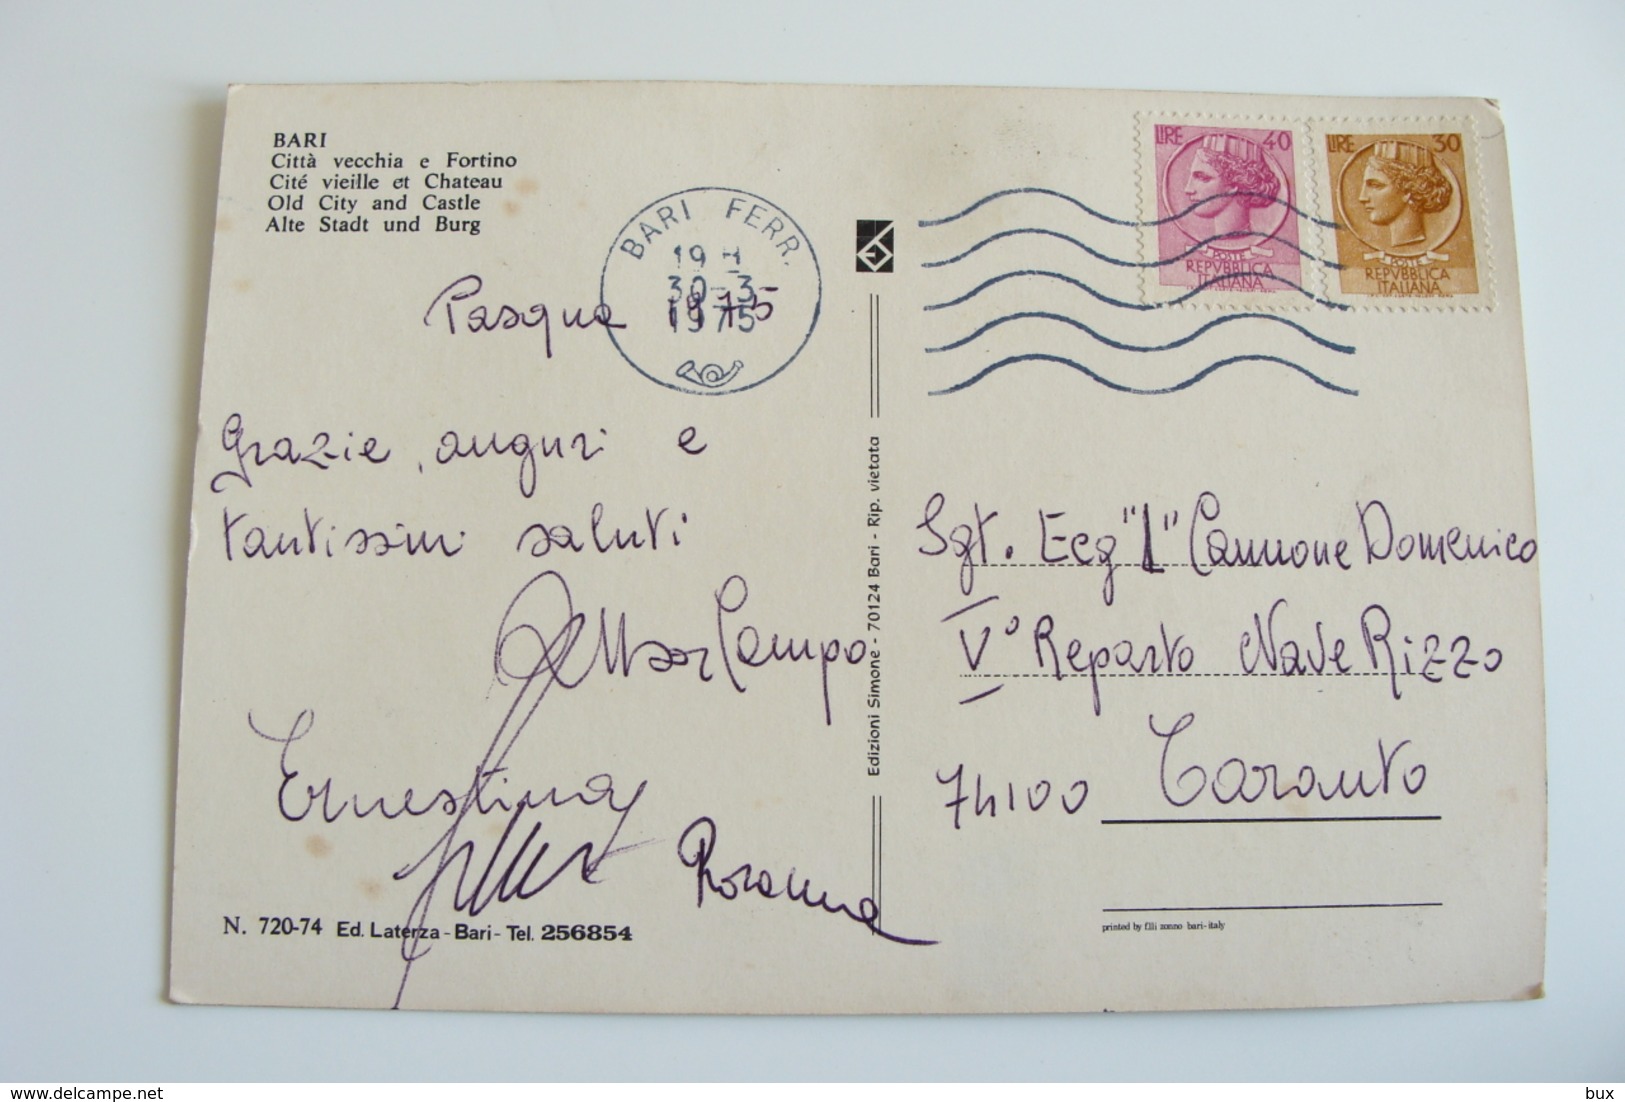 BARI
Città vecchia e Fortino
Cité vieille et Chateau
Old City and Castle
Alte Stadt und Burg
BARI FERR.
19 H
30-3
1975
LIRE 40
POSTE
REPVBBLICA
ITALIANA
LIRE 30
POSTE
REPVBBLICA
ITALIANA
Pasqua 1975
Grazie, auguri e
tantissimi saluti
Campo
Ernestina
Rosanna
Edizioni Simone - 70124 Bari - Rip. vietata
Sgt. Ecg "L" Cannone Domenico
V° Reparto Nave Rizzo
74100 Taranto
N. 720-74 Ed. Laterza - Bari - Tel. 256854
printed by f.lli zonno bari-italy
delcampe.net
bux